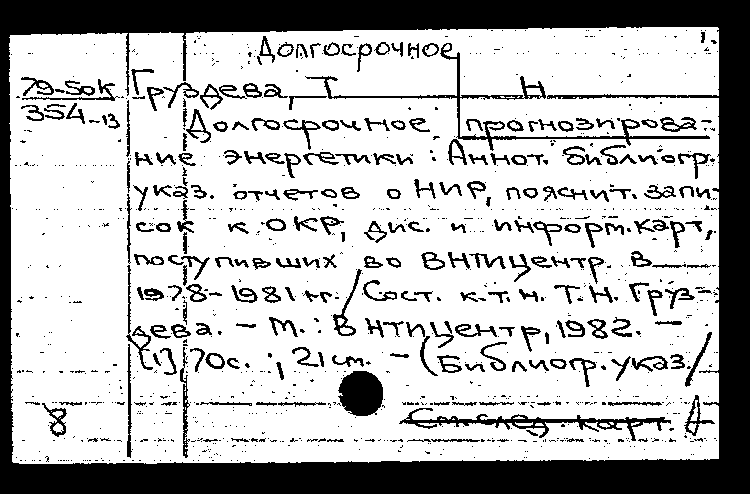 Долгосрочное
1.
79-50к Груздева, Т Н
354-13 Долгосрочное прогнозирова-
ние энергетики: Аннот. библиогр.
указ. отчетов о НИР, пояснит. запи-
сок к ОКР, дис. и информ. карт,
поступивших во ВНТИЦентр. в
1978-1981 гг. / Сост. к.т.н. Т.Н. Груз-
дева. - М.: ВНТИЦентр, 1982. -
[1], 70с. ; 21 см. - (Библиогр. указ./
8 См. след. карт.